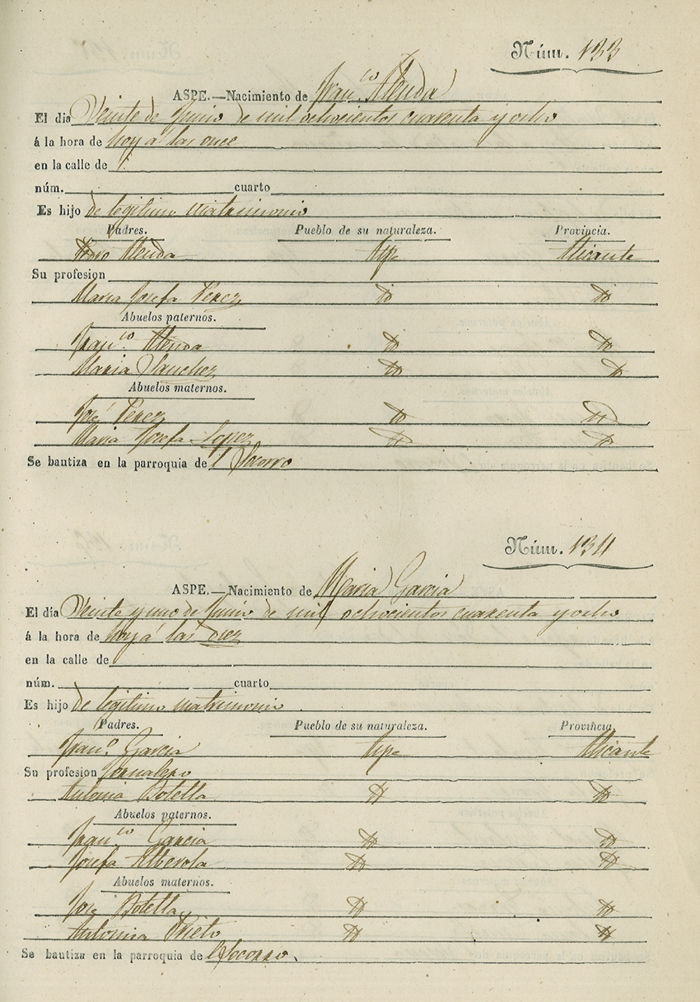 Núm. 133
ASPE.—Nacimiento de Franco Alenda
El día Veinte de Junio de mil ochocientos cuarenta y ocho
á la hora de hoy á las once
en la calle de
núm. cuarto
Es hijo de legitimo matrimonio
Padres. Pueblo de su naturaleza. Provincia.
Alenda Aspe Alicante
Su profesion
Maria Josefa Perez
Abuelos paternos.
Franco Alenda
Maria Sanchez
Abuelos maternos.
José Perez
Maria Josefa Lopez
Se bautiza en la parroquia de el Socorro
Núm. 134
ASPE.—Nacimiento de Maria Garcia
El día Veinte y uno de Junio de mil ochocientos cuarenta y ocho
á la hora de hoy á las diez
en la calle de
núm. cuarto
Es hijo de legitimo matrimonio
Padres. Pueblo de su naturaleza. Provincia.
Franco Garcia Aspe Alicante
Su profesion Jornalero
Antonia Botella
Abuelos paternos.
Franco Garcia
Josefa Alberola
Abuelos maternos.
José Botella
Antonia Prieto
Se bautiza en la parroquia de el Socorro.